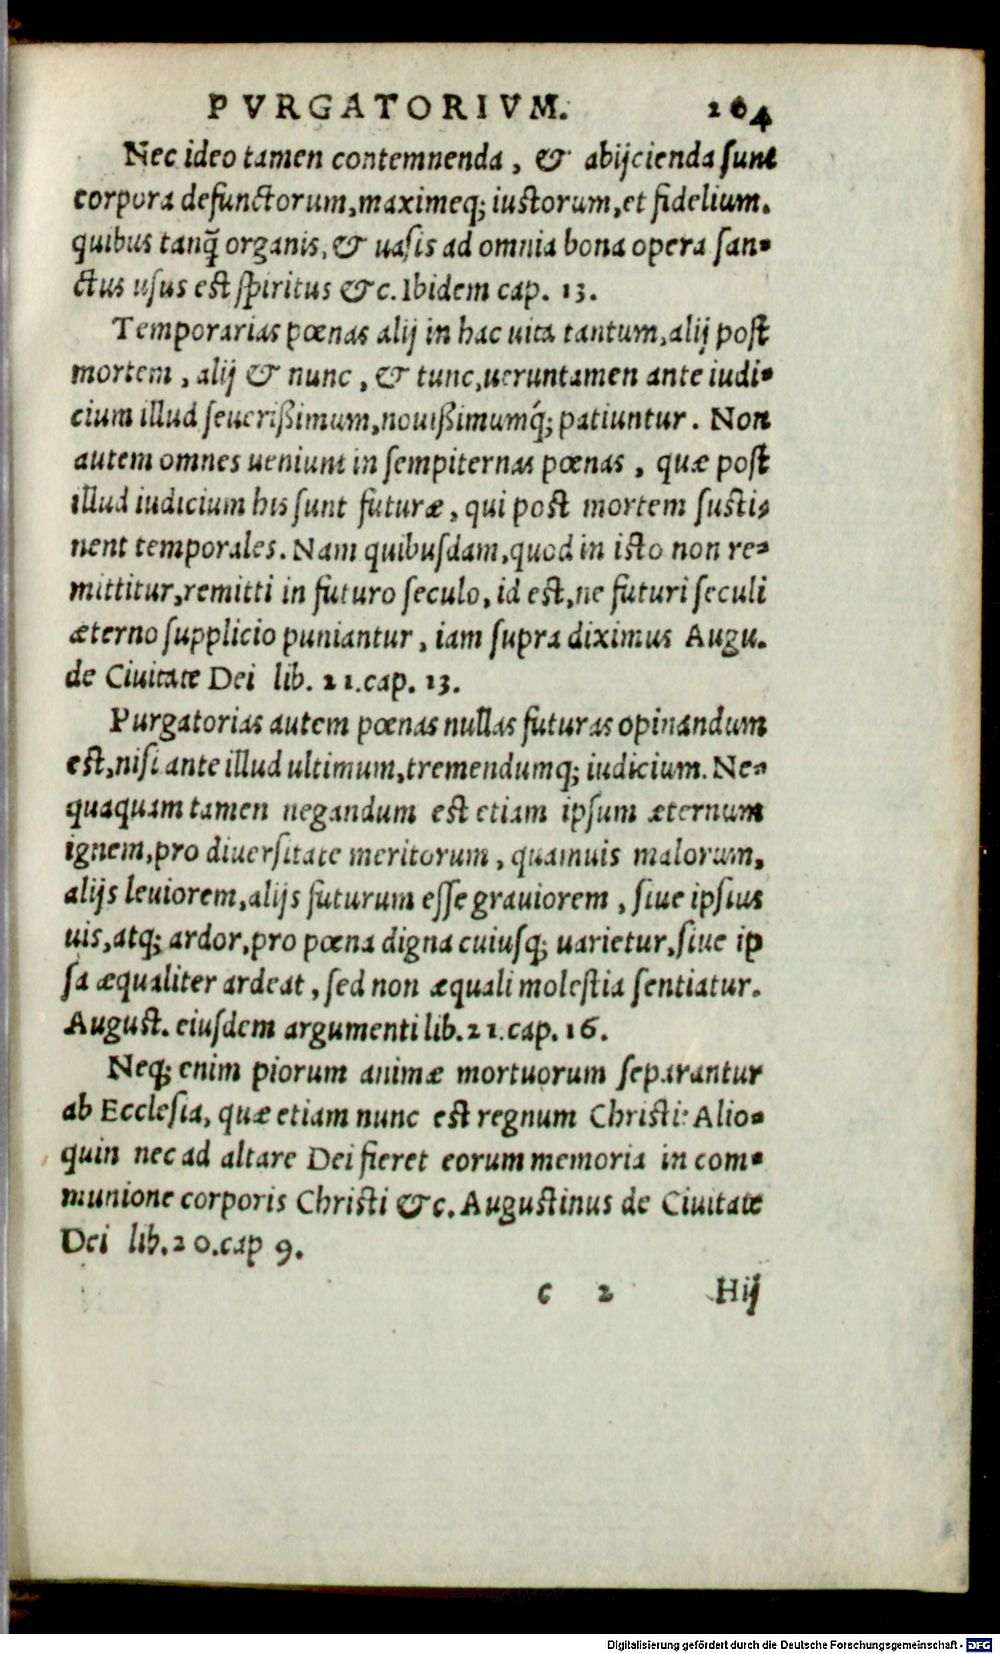 PVRGATORIVM. 204
Nec ideo tamen contemnenda, & abijcienda sunt
corpora defunctorum, maximeq; iustorum, et fidelium.
quibus tanq̃ organis, & uasis ad omnia bona opera san-
ctus usus est spiritus &c. Ibidem cap. 13.
Temporarias pœnas alij in hac uita tantum, alij post
mortem, alij & nunc, & tunc, ueruntamen ante iudi-
cium illud seuerißimum, nouißimumq́; patiuntur. Non
autem omnes ueniunt in sempiternas pœnas, quæ post
illud iudicium his sunt futuræ, qui post mortem susti-
nent temporales. Nam quibusdam, quod in isto non re-
mittitur, remitti in futuro seculo, id est, ne futuri seculi
æterno supplicio puniantur, iam supra diximus Augu.
de Ciuitate Dei lib. 21. cap. 13.
Purgatorias autem pœnas nullas futuras opinandum
est, nisi ante illud ultimum, tremendumq; iudicium. Ne-
quaquam tamen negandum est etiam ipsum æternum
ignem, pro diuersitate meritorum, quamuis malorum,
alijs leuiorem, alijs futurum esse grauiorem, siue ipsius
uis, atq; ardor, pro pœna digna cuiusq; uarietur, siue ip
sa æqualiter ardeat, sed non æquali molestia sentiatur.
August. eiusdem argumenti lib. 21. cap. 16.
Neq; enim piorum animæ mortuorum separantur
ab Ecclesia, quæ etiam nunc est regnum Christi: Alio-
quin nec ad altare Dei fieret eorum memoria in com-
munione corporis Christi &c. Augustinus de Ciuitate
Dei lib. 20. cap 9.
c 2 Hij
Digitalisierung gefördert durch die Deutsche Forschungsgemeinschaft - DFG